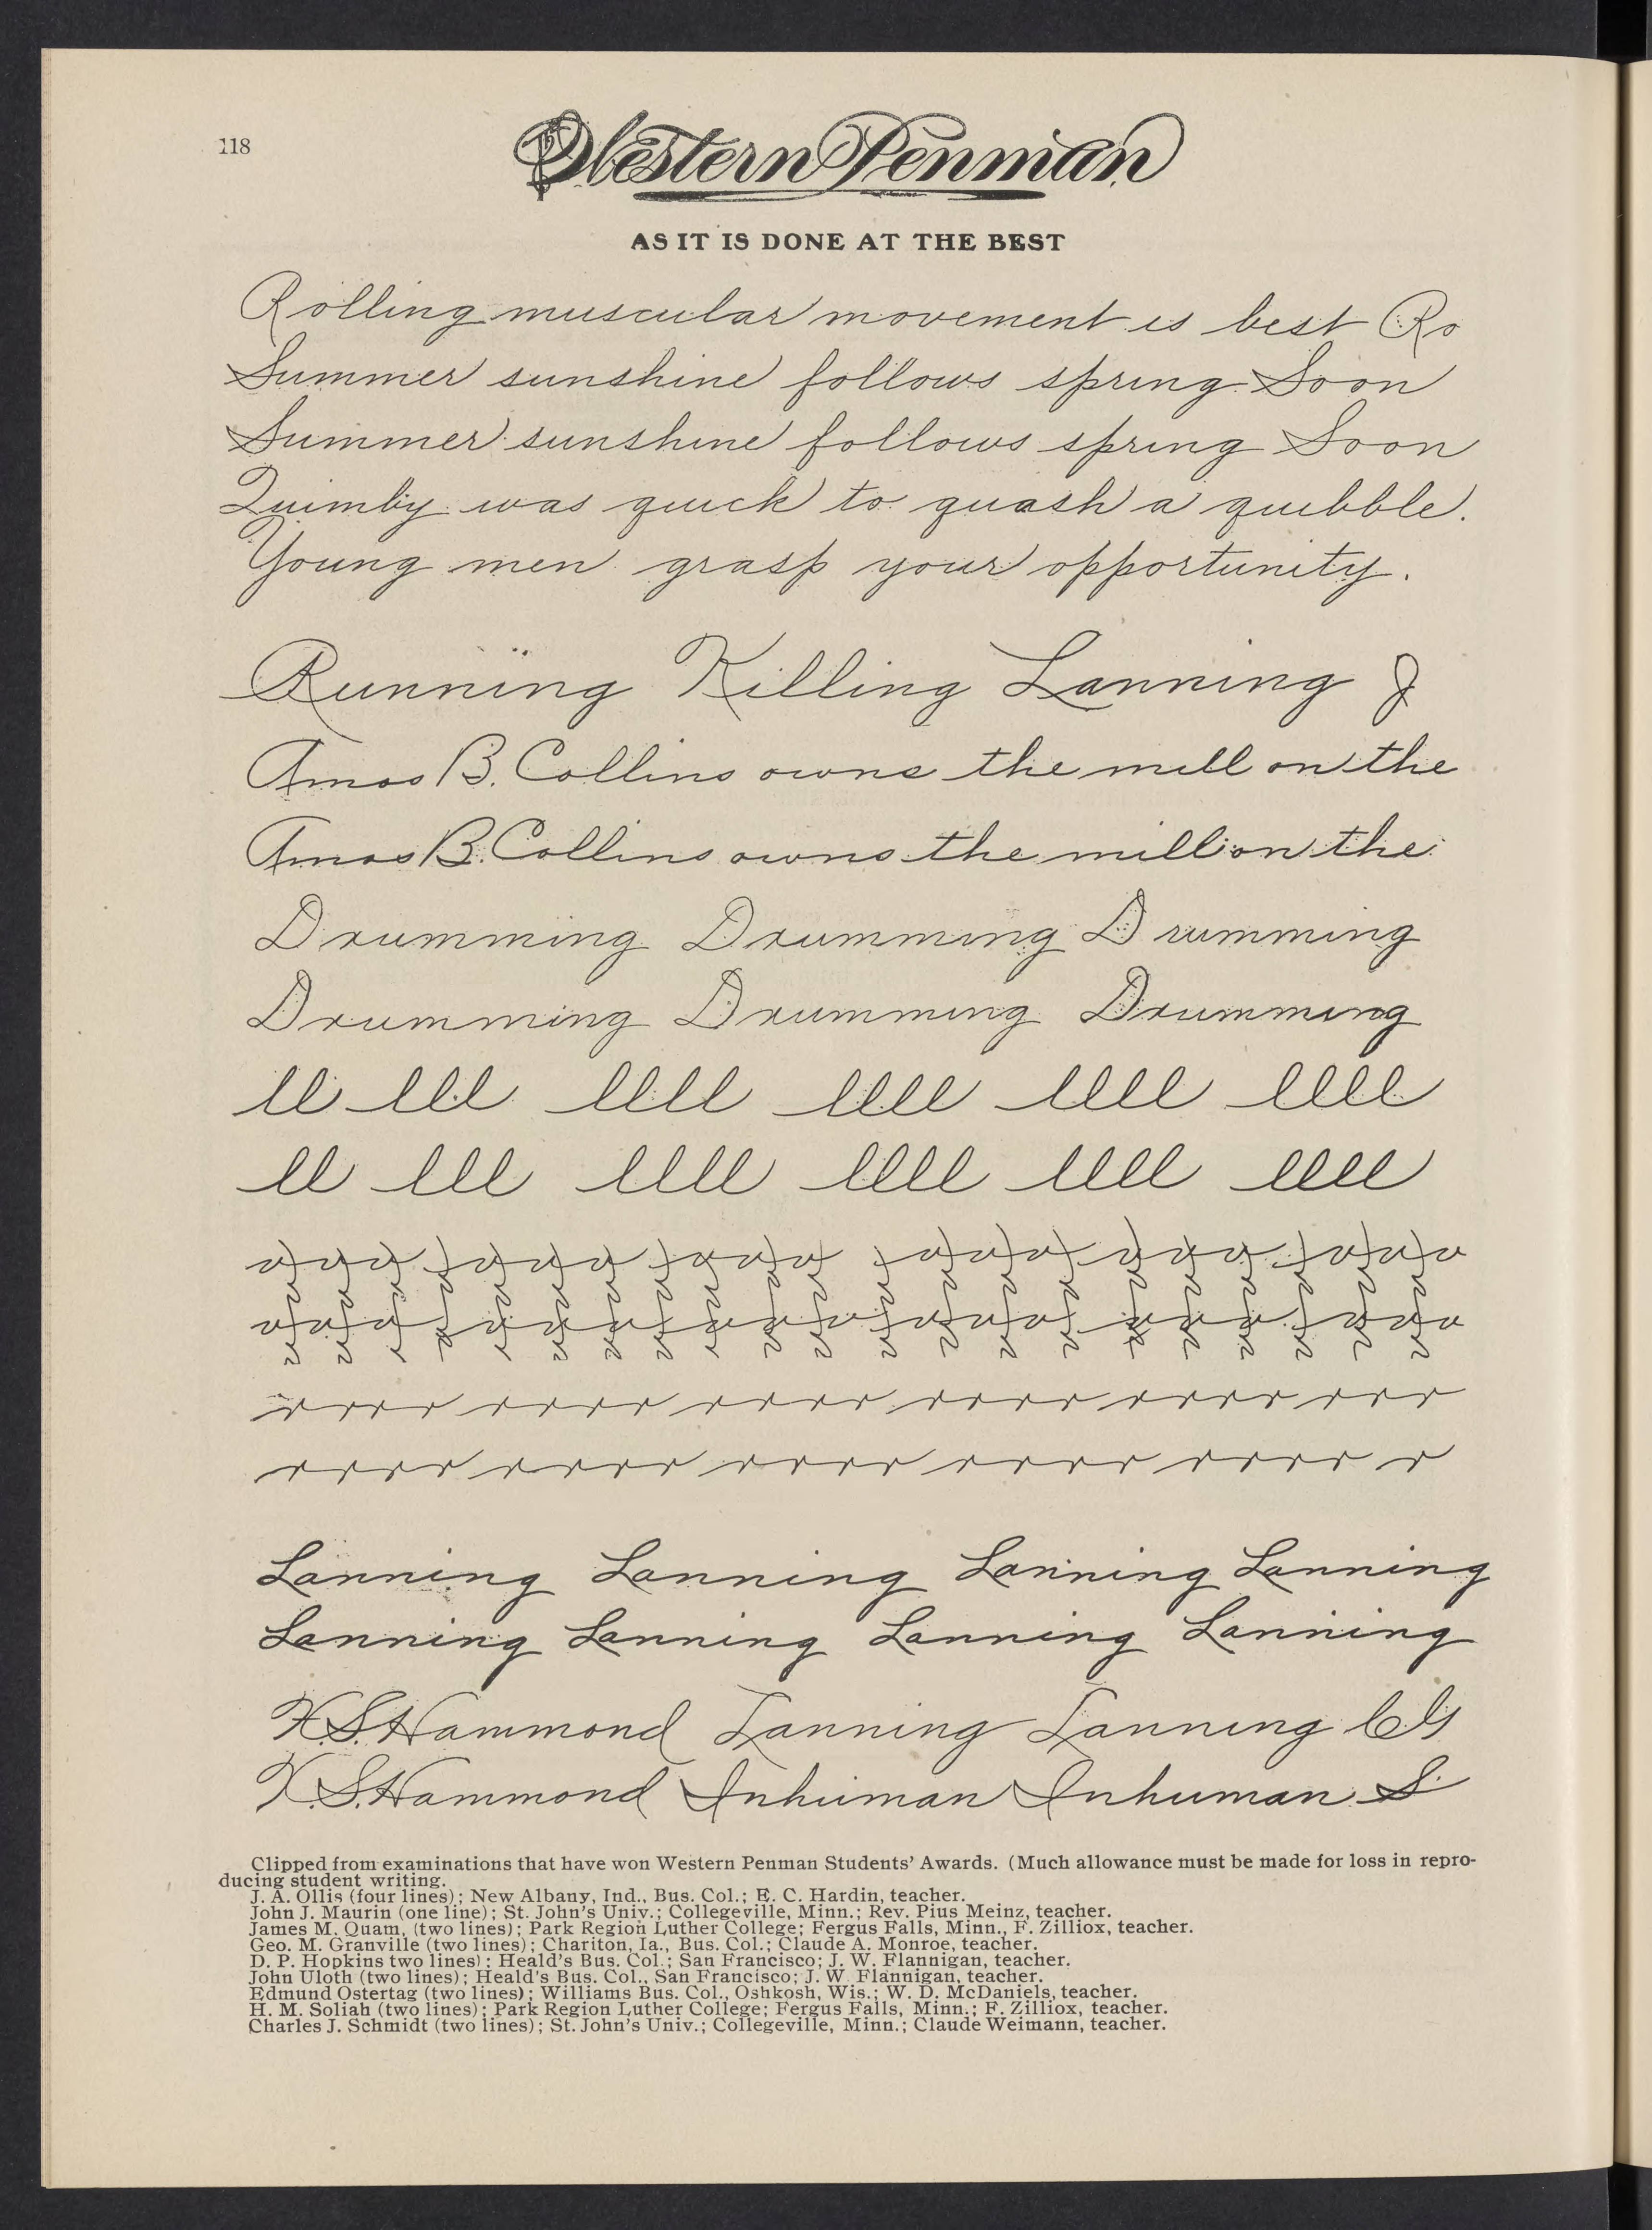 118
Western Penman
AS IT IS DONE AT THE BEST
Rolling muscular movement is best Ro
Summer sunshine follows spring Soon
Summer sunshine follows spring Soon
Quimby was quick to quash a quibble.
Young men grasp your opportunity.
Running Killing Lanning J
Amos B. Collins owns the mill on the
Amos B. Collins owns the mill on the
Drumming Drumming Drumming
Drumming Drumming Drumming
ll lll llll llll llll llll
ll lll llll llll llll llll
rrrr rrrr rrrr rrrr rrrr rrr
rrrr rrrr rrrr rrrr rrrr r
Lanning Lanning Lanning Lanning
Lanning Lanning Lanning Lanning
K.S. Hammond Lanning Lanning
K.S. Hammond Inhuman Inhuman S
Clipped from examinations that have won Western Penman Students' Awards. (Much allowance must be made for loss in repro-
ducing student writing.
J. A. Ollis (four lines); New Albany, Ind., Bus. Col.; E. C. Hardin, teacher.
John J. Maurin (one line); St. John's Univ.; Collegeville, Minn.; Rev. Pius Meinz, teacher.
James M. Quam, (two lines); Park Region Luther College; Fergus Falls, Minn., F. Zilliox, teacher.
Geo. M. Granville (two lines); Chariton, Ia., Bus. Col.; Claude A. Monroe, teacher.
D. P. Hopkins two lines); Heald's Bus. Col.; San Francisco; J. W. Flannigan, teacher.
John Uloth (two lines); Heald's Bus. Col., San Francisco; J. W. Flannigan, teacher.
Edmund Ostertag (two lines); Williams Bus. Col., Oshkosh, Wis.; W. D. McDaniels, teacher.
H. M. Soliah (two lines); Park Region Luther College; Fergus Falls, Minn.; F. Zilliox, teacher.
Charles J. Schmidt (two lines); St. John's Univ.; Collegeville, Minn.; Claude Weimann, teacher.